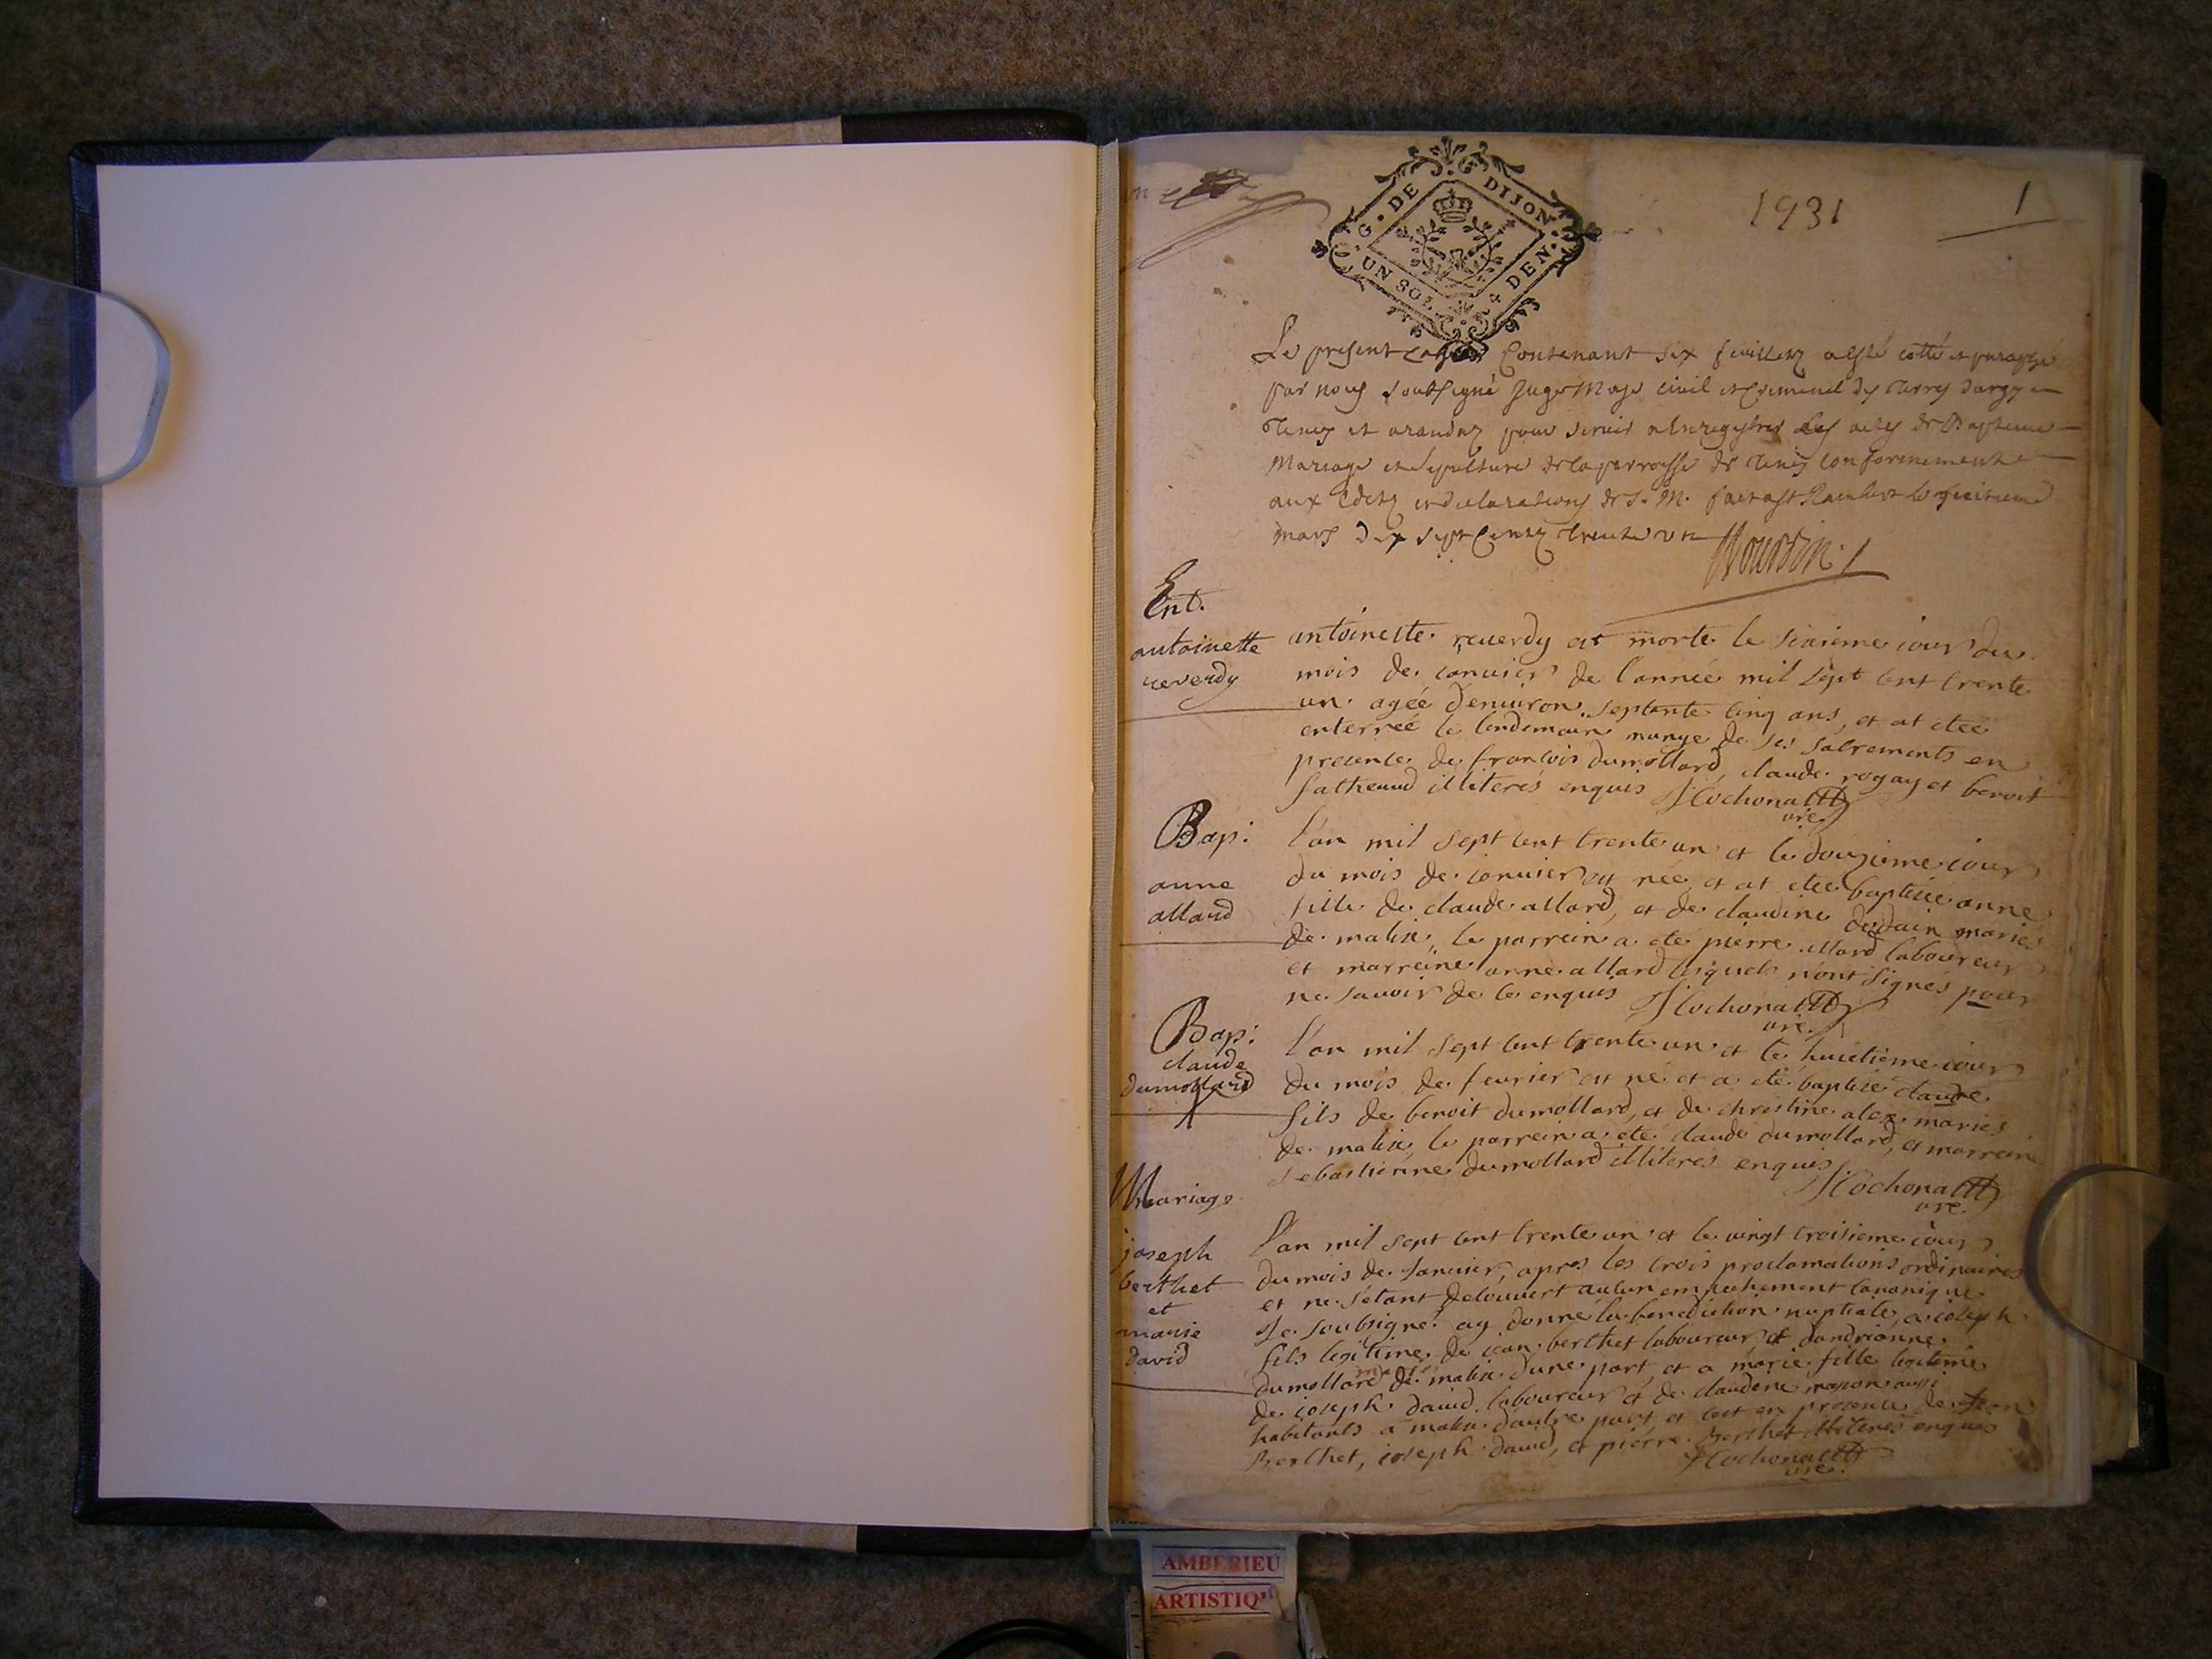 G. DE DIJON
UN SOL 4 DEN.
1731
1
Le present cahier Contenant six feuillets a esté cotté et paraphé
par nous soubsigné Juge Maje civil et criminel des terres dargy
Tenay et arandaz pour servir a Enregistrer Les actes de Baptemes
Mariage et sepulture de la parroisse de Tenay conformement
aux Edits et declarations de S. M. fait a St Rambert le
mars dix sept Cents trente un
Ent.
antoinette
reverdy
antoinette reuerdy at morte le sixieme iour du
mois de ianuier de l'année mil sept cent trente
un agée d'enuiron septente cinq ans, et at etée
enterreé le lendemain munye de ses sacrements en
presence de francois dumollard, claude rogay et benoit
illiterés enquis J Cochonatt
ure
Bap:
anne
allard
l'an mil sept cent trente un et le douzieme iour
du mois de ianuier est neé et at etée baptiseé anne
fille de claude allard, et de claudine dedain mariés
de malix, le parrein a eté pierre allard laboureur
et marreine anne allard lesquels n'ont signés pour
ne sauoir de ce enquis J Cochonatt
ure
Bap:
claude
dumollard
l'an mil sept cent trente un et le huictieme iour
du mois de feurier est né et a eté baptisé claude
fils de benoit dumollard, et de christine alex mariés
de malix, le parrein a eté claude dumollard, et marreine
sebastienne dumollard illiteres enquis
J Cochonatt
ure
Mariage
joseph
berthet
et
marie
david
l'an mil sept cent trente un et le uingt troisieme iour
du mois de Januier, apres les trois proclamations ordinaires
et ne s'etant decouuert aucun empechement canonique
Je soubsigné ay donné la benediction nuptiale, a ioseph
fils legitime de iean berthet laboureur et dandrianne
dumollard de malix d'une part, et a marie fille legitime
de ioseph dauid laboureur et de claudine mason aussi
habitants a malix d'autre part et cest en presence de Jean
Berthet, ioseph dauid, et pierre Berthet illiterés enquis
J Cochonatt
ure
AMBERIEU
ARTISTIQ